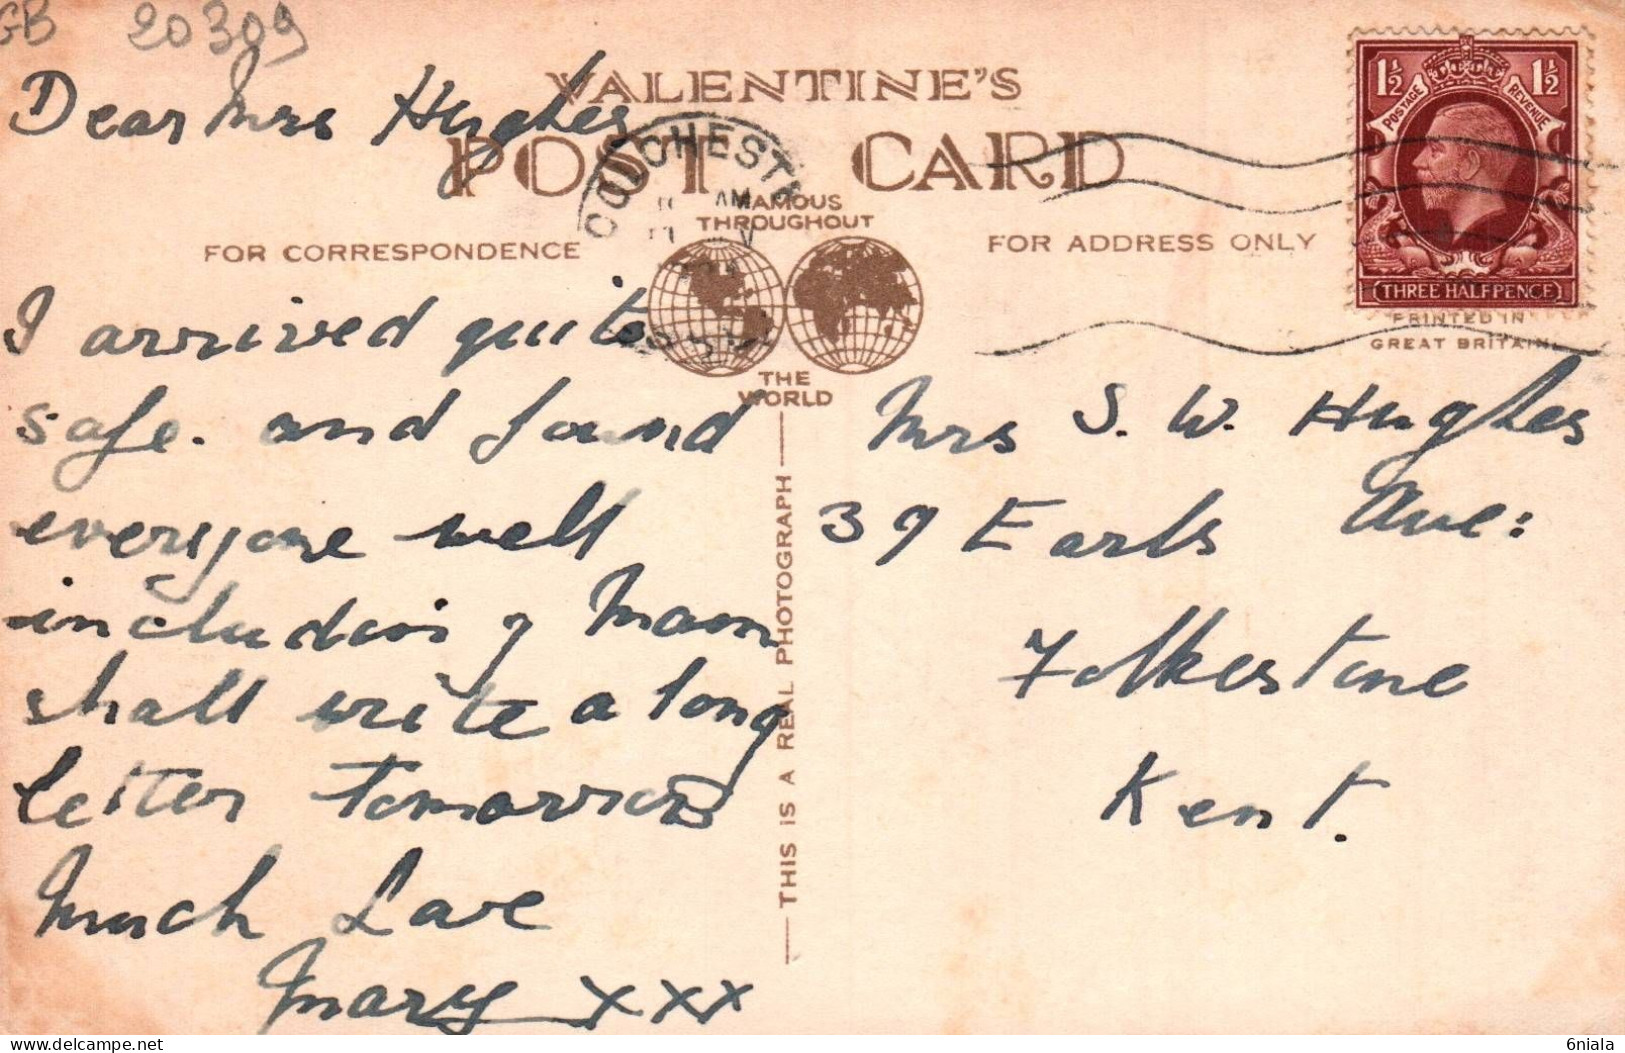 GB 20309
Dear Mrs Hughes
VALENTINE'S
POST CARD
COLCHESTE
AM
FAMOUS
THROUGHOUT
THE
WORLD
FOR CORRESPONDENCE
FOR ADDRESS ONLY
1½ 1½
POSTAGE REVENUE
THREE HALFPENCE
PRINTED IN
GREAT BRITAIN
I arrived quite
safe. and found
everyone well
including Mam
shall write a long
letter tomorrow
Much Love
Mary xxx
THIS IS A REAL PHOTOGRAPH
Mrs S. W. Hughes
39 Earls Ave:
Folkestone
Kent.
6niala
delcampe.net